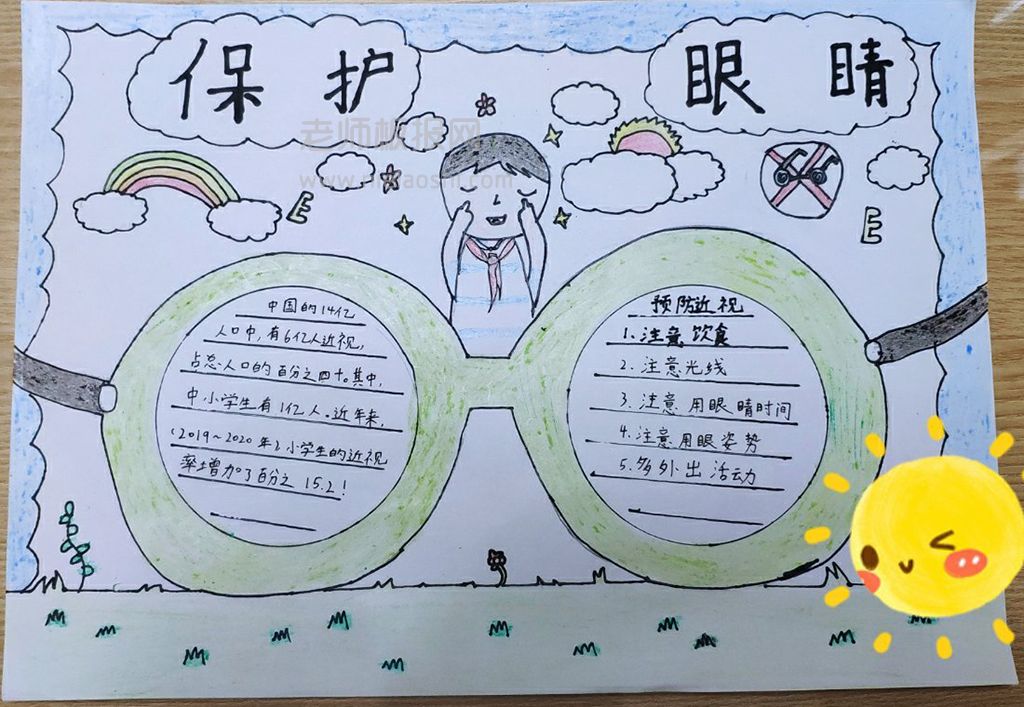 保护
眼睛
老师板报网
E
E
中国的14亿
人口中,有6亿人近视,
占总人口的百分之四十。其中,
中小学生有1亿人。近年来,
(2019~2020年)小学生的近视
率增加了百分之15.2!
预防近视
1.注意饮食
2.注意光线
3.注意用眼睛时间
4.注意用眼姿势
5.多外出活动